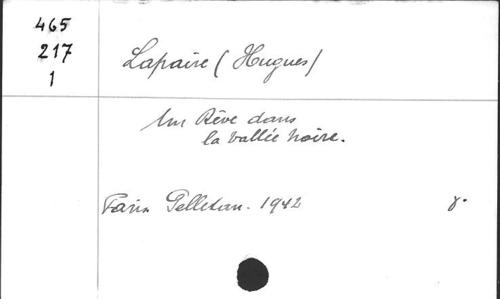 465
217
1
Lapaire (Hugues)
Un Rêve dans
la Vallée Noire.
Paris Pelletan. 1942 8°